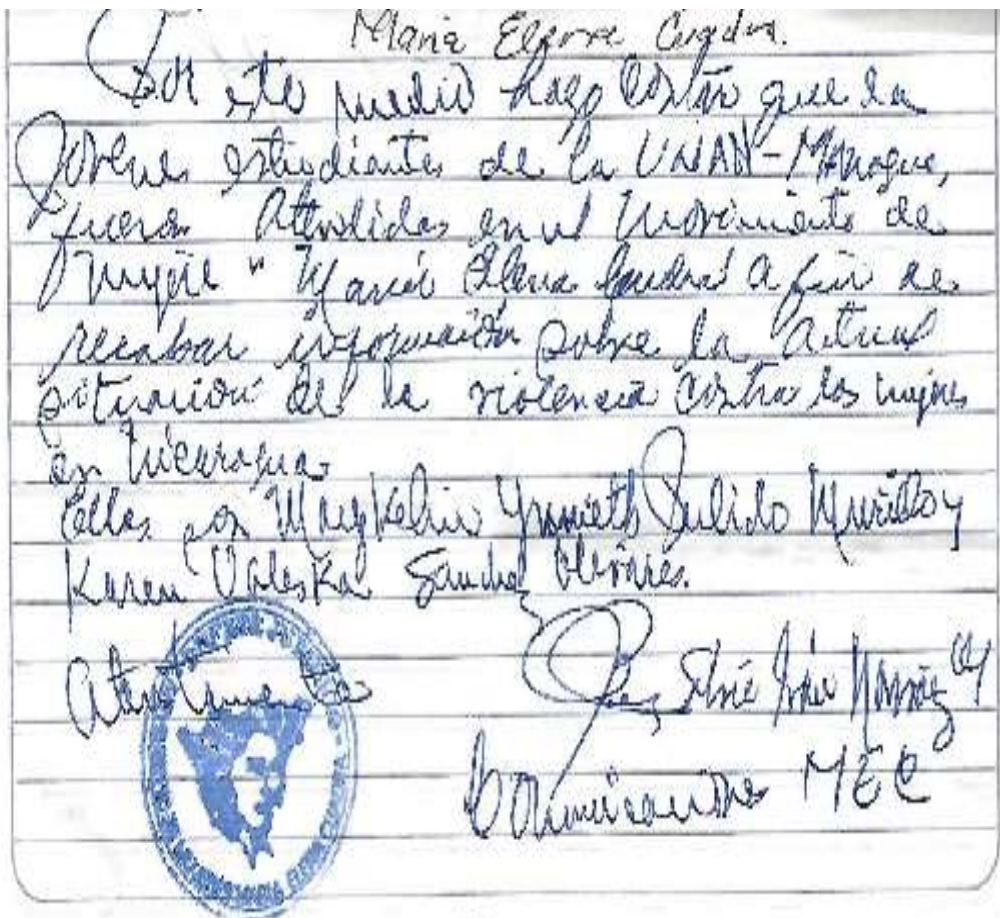 María Elena
Por este medio hago constar que la
jóvenes estudiantes de la UNAN-Managua,
fueron Atendidas en el Movimiento de
mujere " María Elena Cuadra" a fin de
recabar información sobre la actual
situación de la violencia contra las mujeres
en Nicaragua.
Ellas son Yunieth Pulido Murillo y
Karen Valeska Sánchez Olivares.
Atentamente
MEC